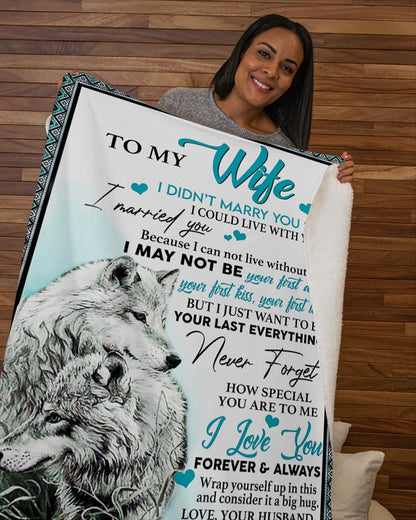 TO MY Wife
I DIDN'T MARRY YOU
I COULD LIVE WITH
I married you
Because I can not live without
I MAY NOT BE your first
your first kiss, your first
BUT I JUST WANT TO
YOUR LAST EVERYTHING
Never Forget
HOW SPECIAL
YOU ARE TO ME
I Love You
FOREVER & ALWAYS
Wrap yourself up in this
and consider it a big hug.
LOVE, YOUR HUSBAND